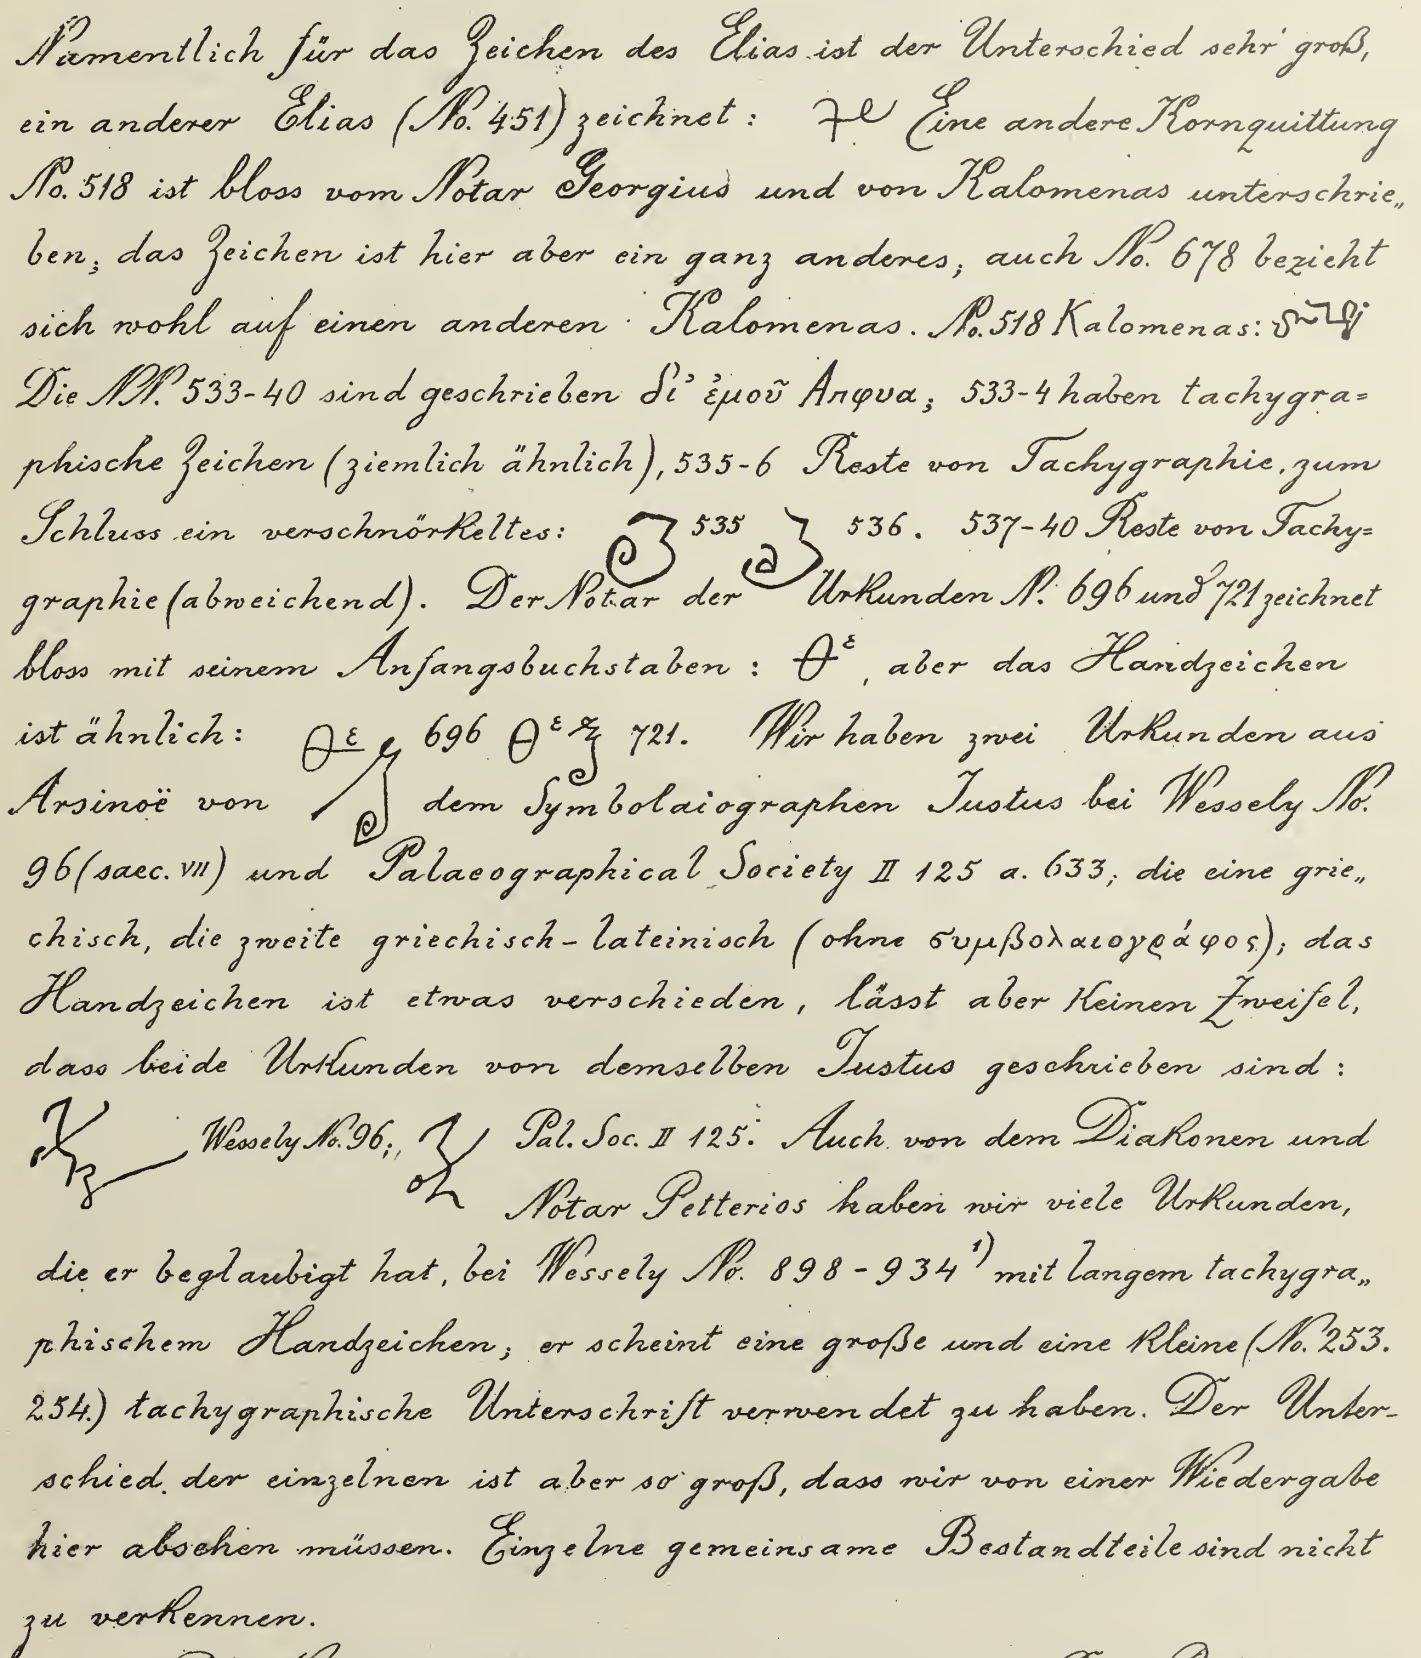 Namentlich für das Zeichen des Elias ist der Unterschied sehr groß,
ein anderer Elias (No. 451) zeichnet: Eine andere Kornquittung
No. 518 ist bloss vom Notar Georgius und von Kalomenas unterschrie„
ben; das Zeichen ist hier aber ein ganz anderes; auch No. 678 bezieht
sich wohl auf einen anderen Kalomenas. No. 518 Kalomenas:
Die NN. 533-40 sind geschrieben δι’ ἐμοῦ Απφυα; 533-4 haben tachygra=
phische Zeichen (ziemlich ähnlich), 535-6 Reste von Tachygraphie, zum
Schluss ein verschnörkeltes: 535 536. 537-40 Reste von Tachy=
graphie (abweichend). Der Notar der Urkunden N. 696 und 721 zeichnet
bloss mit seinem Anfangsbuchstaben: θ^ε, aber das Handzeichen
ist ähnlich: θε 696 θ^ε 721. Wir haben zwei Urkunden aus
Arsinoë von dem Symbolaiographen Justus bei Wessely No.
96 (saec. VII) und Palaeographical Society II 125 a. 633; die eine grie„
chisch, die zweite griechisch-lateinisch (ohne συμβολαιογράφος); das
Handzeichen ist etwas verschieden, lässt aber keinen Zweifel,
dass beide Urkunden von demselben Justus geschrieben sind:
Wessely No. 96; Pal. Soc. II 125. Auch von dem Diakonen und
Notar Petterios haben wir viele Urkunden,
die er beglaubigt hat, bei Wessely No. 898-934 ¹) mit langem tachygra„
phischem Handzeichen; er scheint eine große und eine kleine (No. 253.
254.) tachygraphische Unterschrift verwendet zu haben. Der Unter-
schied der einzelnen ist aber so groß, dass wir von einer Wiedergabe
hier absehen müssen. Einzelne gemeinsame Bestandteile sind nicht
zu verkennen.